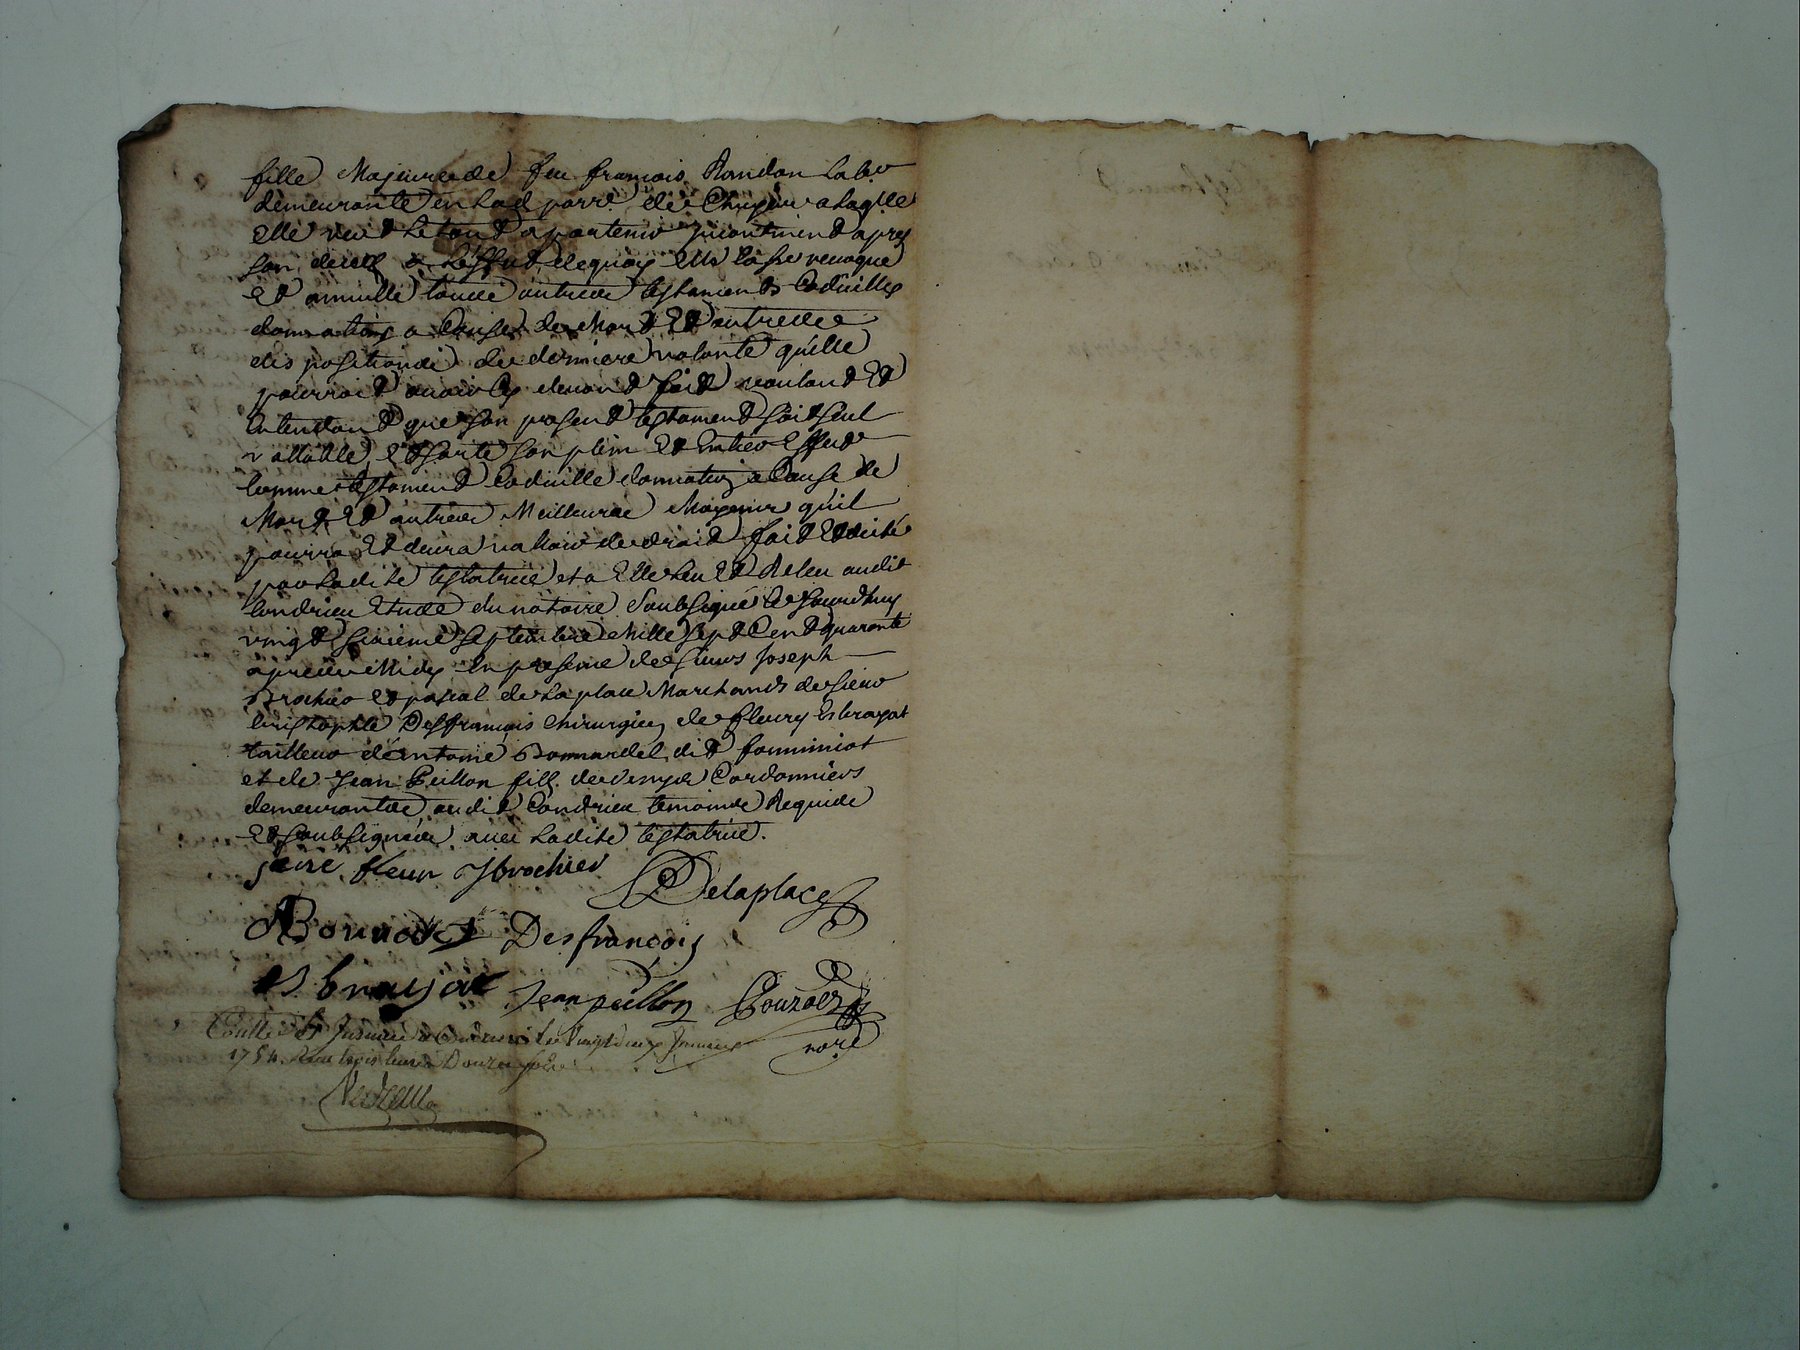 fille Majeure de feu francois Randon Labo
demeurante en lad parre de Chuyer a laqlle
elle veut le tout apartenir incontinent apres
son deces a l'effet dequoy elle casse revoque
et annulle toutte autres testaments Codicilles
donnations a Cause de Mort Et autres
dispositions de derniere volonté qu'elle
pourroit avoir cy devant fait voulant Et
Entendant que son presend testament soit seul
vallable, et sorte son plein Et Entier Effet
comme testament Codicille donnation a Cause de
Mort Et autres Meilleures Moyens qu'il
pourra Et devra valloir de droit fait Et dicté
par ladite testatrice et a Elle leu Et Releu audit
Condrieu Etude du notaire Soubsigné Ce Jourdhuy
vingt sixieme septembre Mille sept Cent quarante
apres Midy En presence de sieurs Joseph
Brochier et pascal de la place Marchands de sieur
Cristophle Desfrancois chirurgien de fleury Esbrayat
tailleur d'antoine Bonnardel dit
et de Jean Peillon fils de Cordonniers
demeurantes audit Condrieu temoins Requis
Et soubsignés avec ladite testatrice.
fleur JBrochier
Delaplace
Desfrançois
esbrayat Jean peillon
nore
Conttrollé Et Insinué a Condrieu le vingt deux Janvier
1754. Reçu trois livres Douze sols